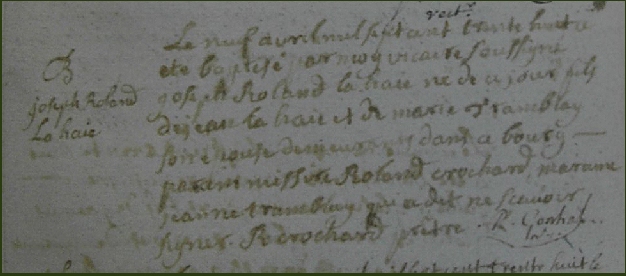 B
joseph Roland
La haie
Le neuf avril mil sept cent trente huit a
ete baptisé par moy vicaire soussigné
joseph Roland la haie né de ce jour fils
de jean la haie et de marie Tramblay
son epouse demeurants dans ce bourg
parain missire Roland crochard maraine
jeanne tramblay qui a dit ne scavoir
signer. R crochard prêtre. R.
trente huit le